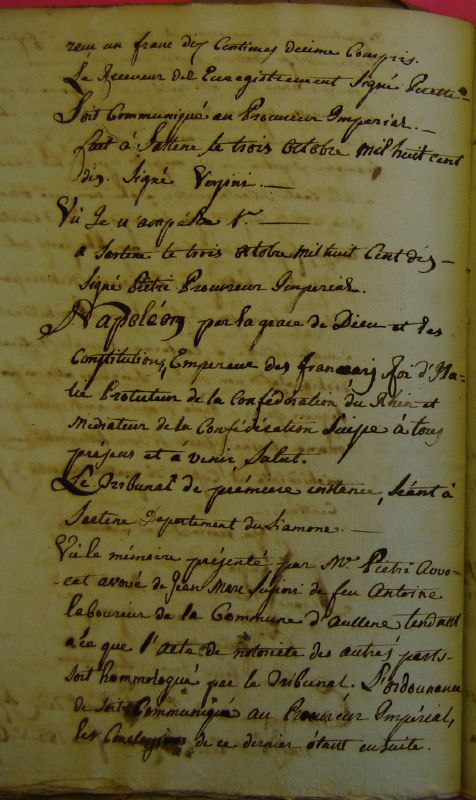 recu un franc dix Centimes decime Compris.
Le Receveur de l'Enregistrement Signé
Soit Communiqué au Procureur Imperial. —
fait à Sartene le trois octobre mil huit cent
dix. Signé
Vû Je n'empéche
a Sartene le trois octobre mil huit Cent dix —
Signé Pietri Procureur Imperial.
Napoléon par la grace de Dieu et les
Constitutions, Empereur des francais, Roi d'Ita-
lie Protecteur de la Confédération du Rhin et
Médiateur de la Conféderation Suisse à tous
présens et à venir, Salut.
Le Tribunal de prémiere instance, séant à
Sartene Departement du Liamone. —
Vû le mémoire présenté par Mr. Pietri Avo-
-cat avoué de Jean Marc de feu Antoine
laboureur de la Commune d'Aullene tendant
a ce que l'acte de notorieté des autres parts
soit hommologué par le Tribunal. L'ordonnance
de soit Communiqué au Procureur Impérial,
les Conclusions de ce dernier étant ensuite.